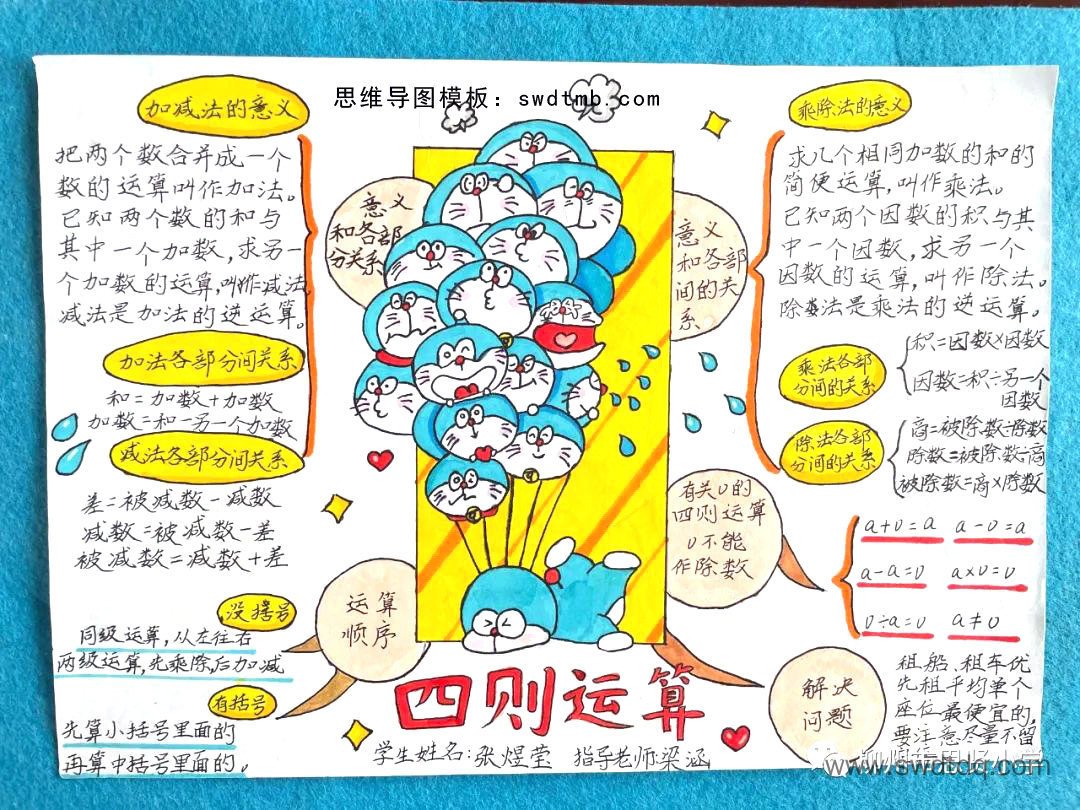 思维导图模板：swdtmb.com
加减法的意义
把两个数合并成一个
数的运算叫作加法。
已知两个数的和与
其中一个加数,求另一
个加数的运算,叫作减法
减法是加法的逆运算。
加法各部分间关系
和=加数+加数
加数=和-另一个加数
减法各部分间关系
差=被减数-减数
减数=被减数-差
被减数=减数+差
意义
和各部
分关系
没括号
同级运算,从左往右
两级运算,先乘除,后加减
有括号
先算小括号里面的
再算中括号里面的。
运算
顺序
乘除法的意义
求几个相同加数的和的
简便运算,叫作乘法。
已知两个因数的积与其
中一个因数,求另一个
因数的运算,叫作除法。
除法是乘法的逆运算。
意义
和各部
间的关
系
乘法各部
分间的关系
积=因数×因数
因数=积÷另一个
因数
除法各部
分间的关系
商=被除数÷除数
除数=被除数÷商
被除数=商×除数
有关0的
四则运算
0不能
作除数
a+0=a a-0=a
a-a=0 a×0=0
0÷a=0 a≠0
解决
问题
租船、租车优
先租平均单个
座位最便宜的,
要注意尽量不留
四则运算
学生姓名:张煜莹 指导老师:梁涵
www.swdtdq.com